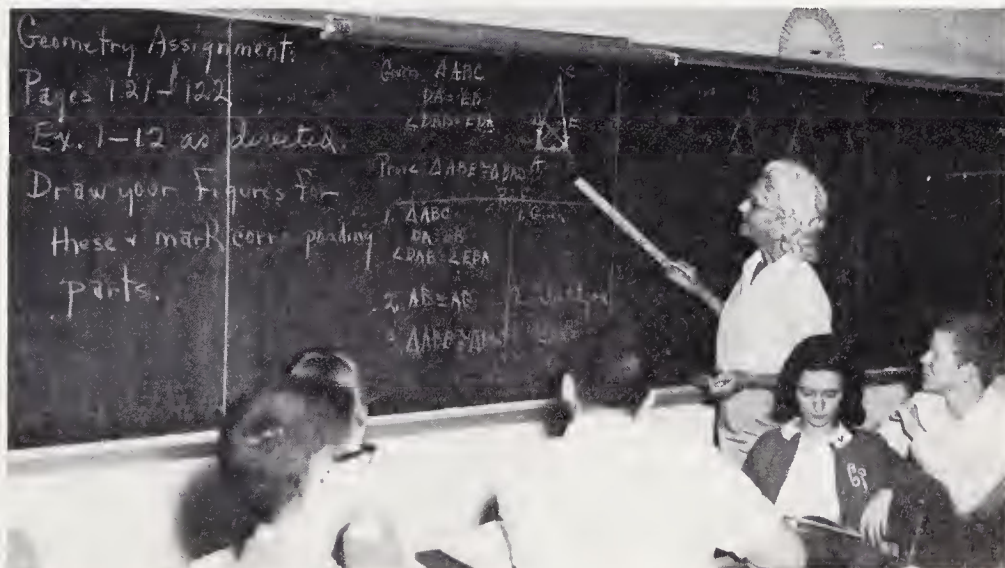 Geometry Assignment:
Pages 121-122
Ex. 1-12 as directed.
Draw your Figures for
these & mark corr ponding
parts.
Given △ABC
DA=EB
∠DAB=∠EBA
C
E
Prove △ABE≅△BAD
1. △ABC
DA=EB
∠DAB=∠EBA
1. Given
2. AB=AB
2.
△ABE≅